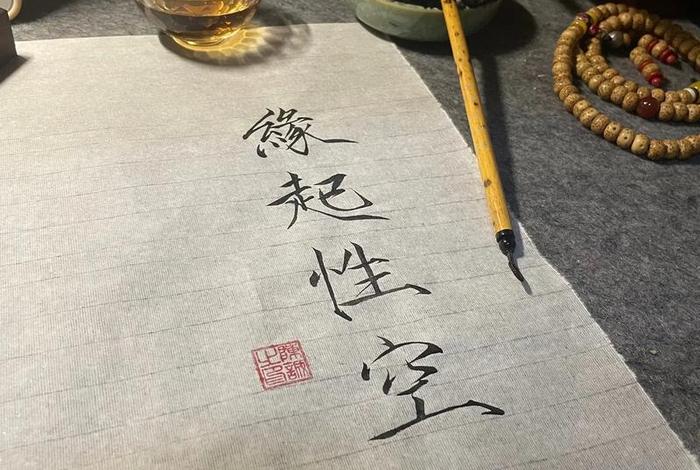 緣起性空